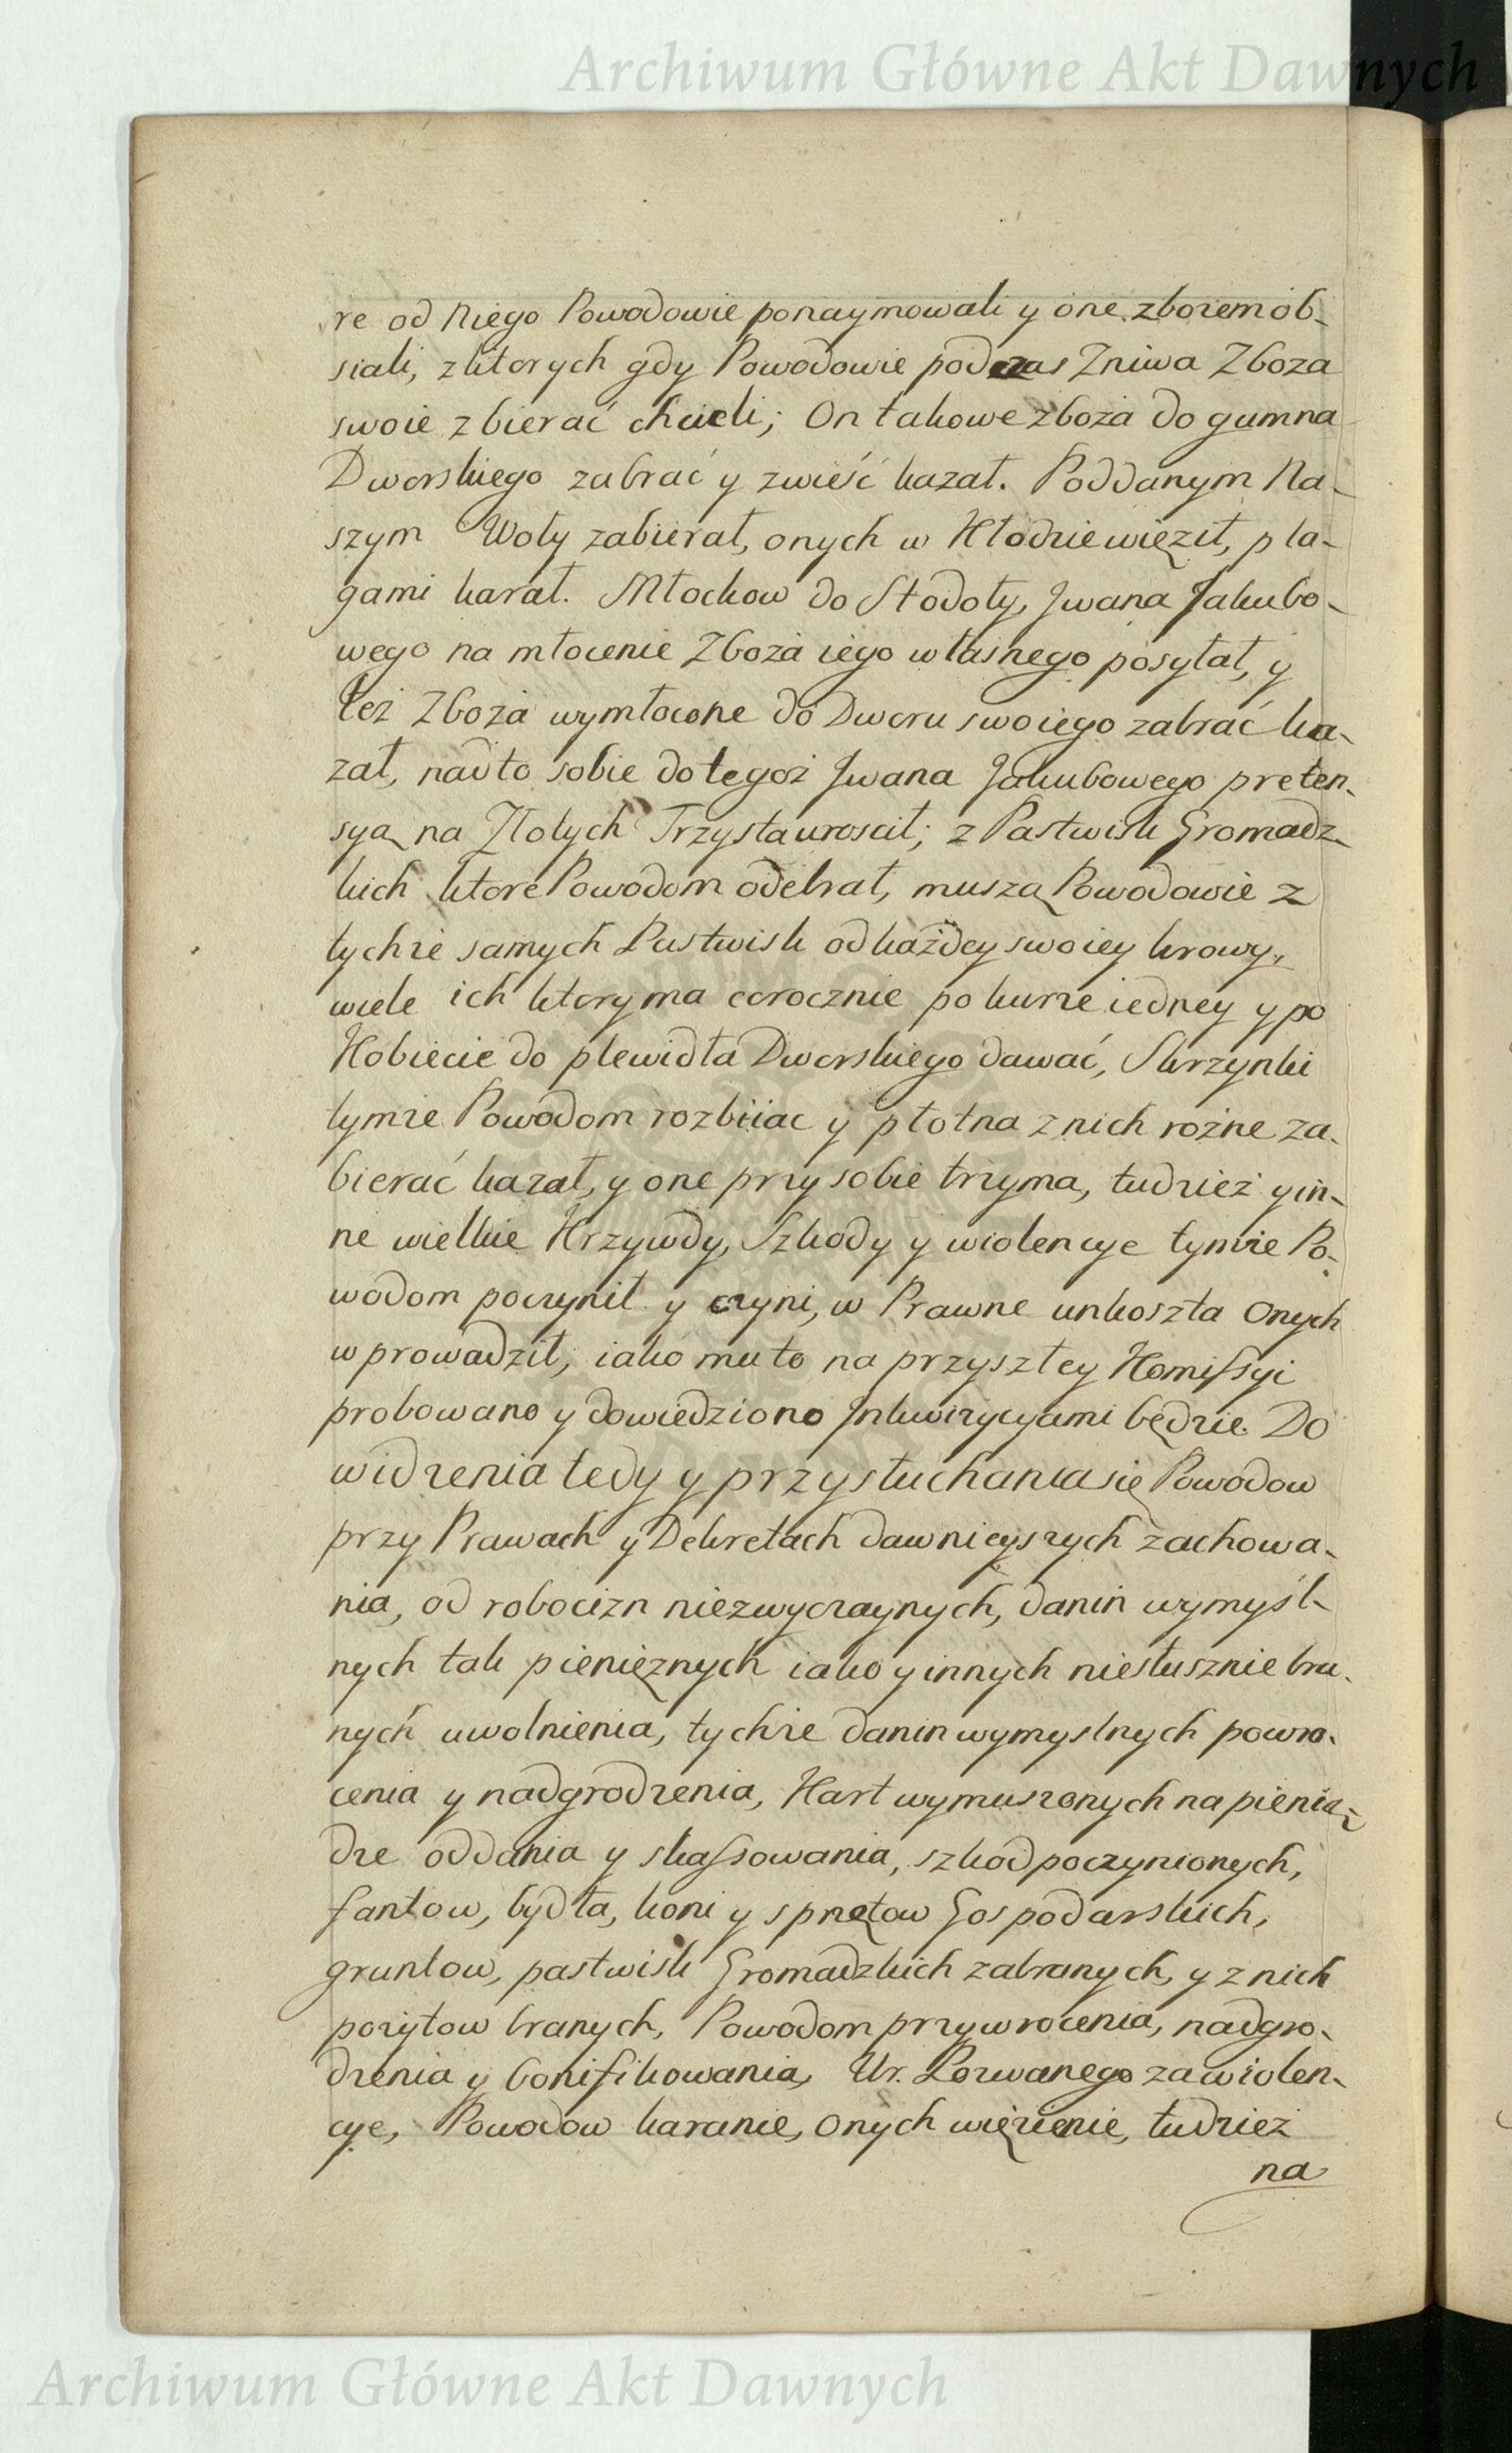 Archiwum Główne Akt Dawnych
re od Niego Powodowie ponaymowali y one zbożem ob-
siali, z ktorych gdy Powodowie podczas Zniwa Zboza
swoie zbierać chcieli; On takowe zboża do gumna
Dworskiego zabrać y zwieść kazał. Poddanym Na-
szym Woły zabierał, onych w Kłodzie więził, pla-
gami karał. Młockow do Stodoły, Jwana Jakubo-
wego na młocenie Zboża iego własnego posyłał, y
też Zboża wymłocone do Dworu swoiego zabrać ka-
zał, nadto sobie do tegoż Jwana Jakubowego preten-
syą na Złotych Trzysta uroscił; z Pastwisk Gromadz-
kich ktore Powodom odebrał, muszą Powodowie z
tychże samych Pastwisk od każdey swoiey krowy,
wiele ich ktory ma corocznie po kurze iedney y po
Kobiecie do plewidła Dworskiego dawać, Skrzynki
tymże Powodom rozbiiac y płotna z nich rożne za-
bierać kazał, y one przy sobie trzyma, tudzież y in-
ne wielkie Krzywdy, Szkody y wiolencye tymże Po-
wodom poczynił y czyni, w Prawne unkoszta onych
wprowadził, iako mu to na przyszłey Komissyi
probowano y dowiedziono Jnkwizycyami będzie. Do
widzenia tedy y przysłuchania się Powodow
przy Prawach y Dekretach dawnieyszych zachowa-
nia, od robocizn niezwyczaynych, danin wymyśl-
nych tak pienięznych iako y innych niesłusznie bra-
nych uwolnienia, tychże danin wymyslnych powro-
cenia y nadgrodzenia, Kart wymuszonych na pienią-
dze oddania y skassowania, szkod poczynionych,
fantow, bydła, koni y sprzętow Gospodarskich,
gruntow, pastwisk Gromadzkich zabranych, y z nich
pożytow branych, Powodom przywrocenia, nadgro-
dzenia y bonifikowania, Ur. Pozwanego za wiolen-
cye, Powodow karanie, onych więzienie, tudzież
na
Archiwum Główne Akt Dawnych